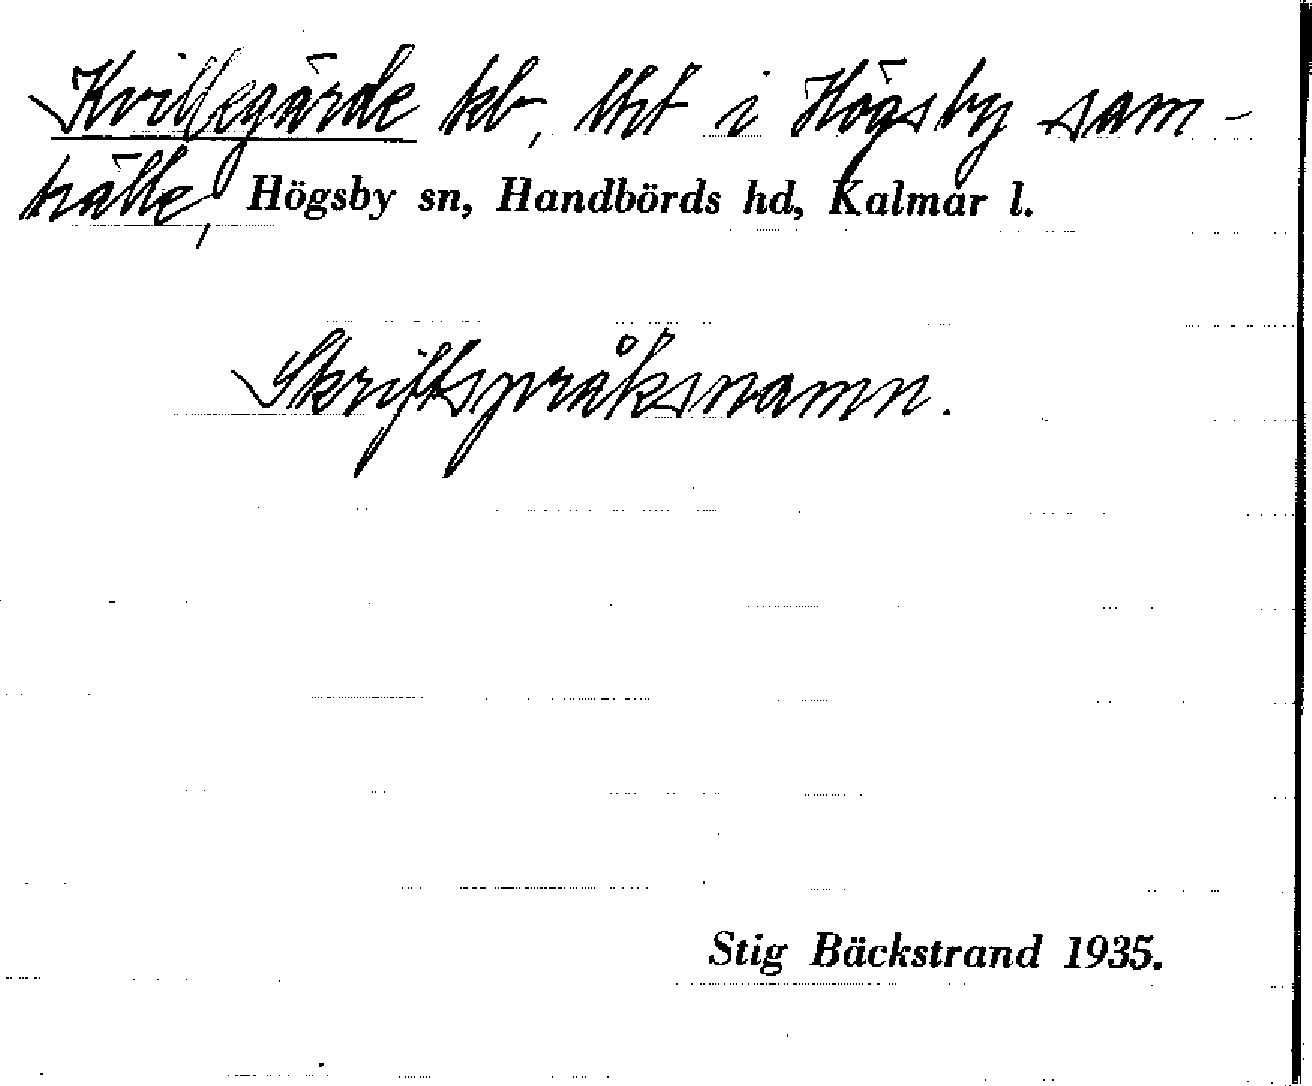 Kvillegärde kb, tht i Högsby sam-
hälle, Högsby sn, Handbörds hd, Kalmar l.
Skriftspråksnamn.
Stig Bäckstrand 1935.